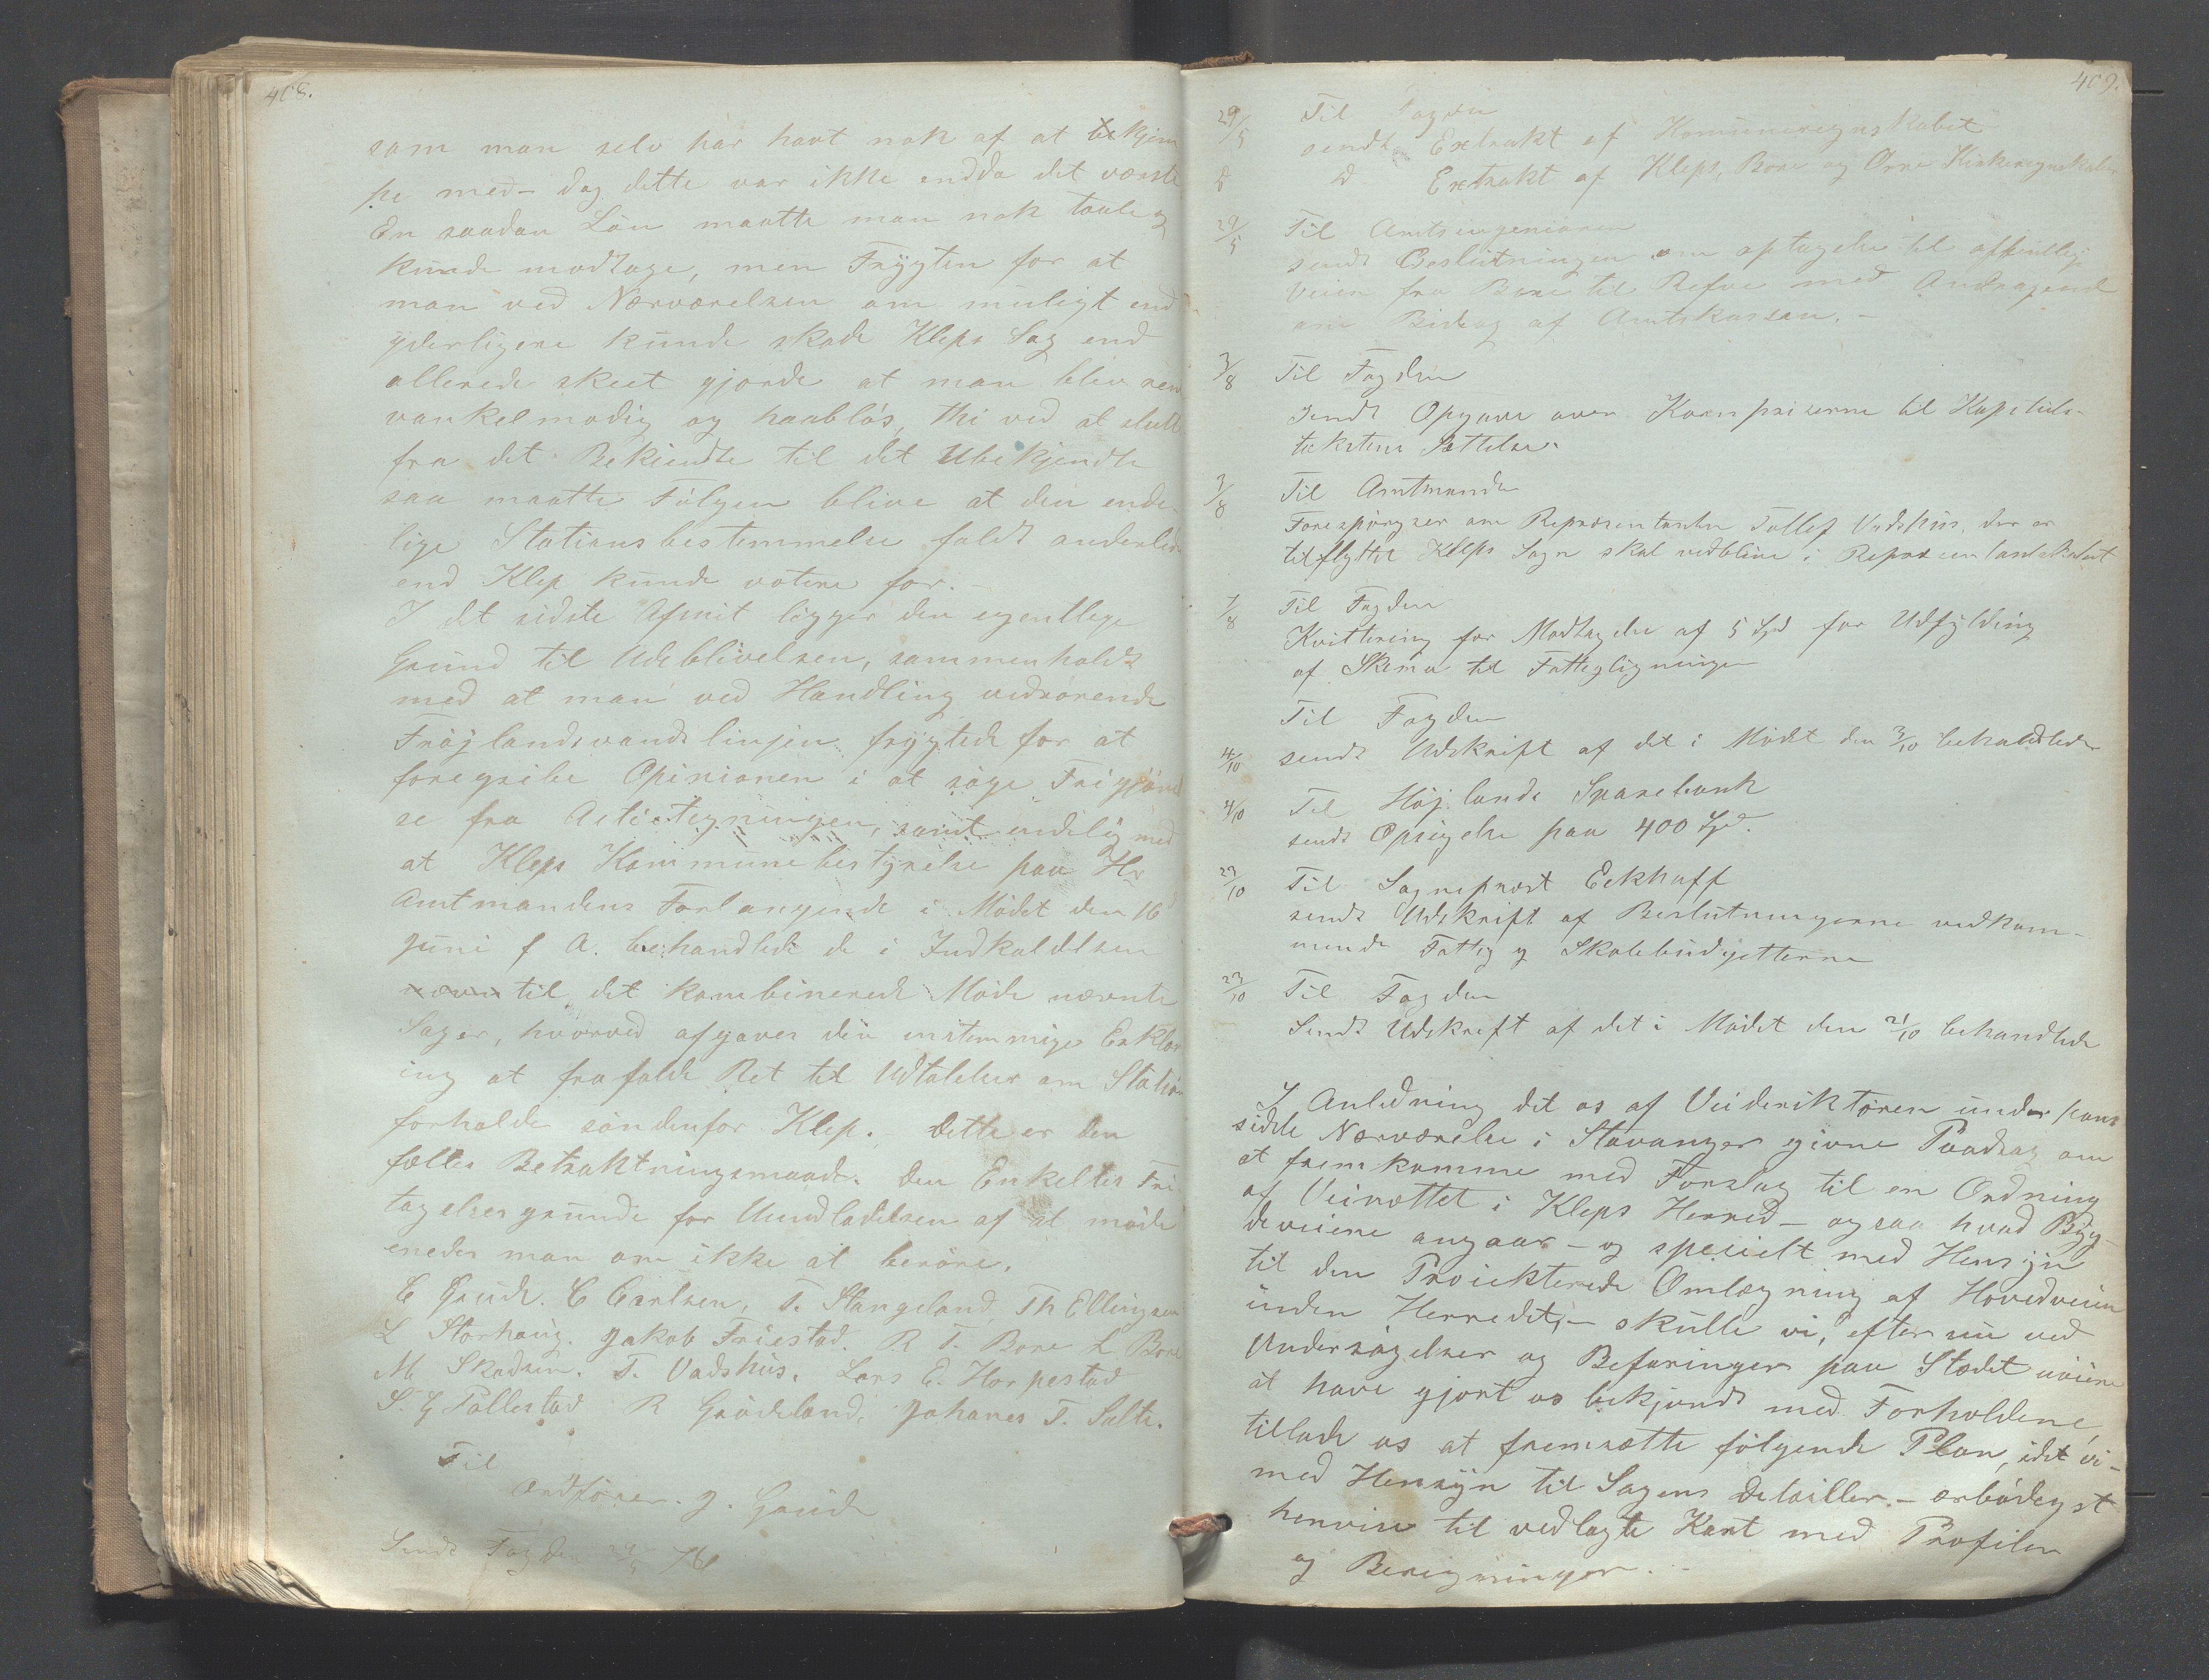 408.
som man selv har havt nok af at bekjem
pe med - dog dette var ikke endda det værste
En saadan Løn maatte man nok taale og
kunde modtage, men Frygten for at
man ved Nærværelsen om muligt end
yderligere kunde skade Kleps Sag end
allerede skeet gjorde at man blev
vankelmodig og haabløs, thi ved at slutte
fra det Bekiendte til det Ubekjendte
saa maatte Følgen blive at den ende-
lige Stationsbestemmelse faldt anderledes
end Klep kunde votere for.
I det sidste Afsnit ligger den egentlige
Grund til Udeblivelsen, sammenholdt
med at man ved Handling vedrørende
Frøjlandsvandslinjen frygtede for at
foregribe Opinionen i at søge Frigjørel
se fra Actietegningen, samt endelig med
at Kleps Kommunebestyrelse paa Hr
Amtmandens Forlangende i Mødet den 16d
Juni f A. behandlede de i Indkaldelsen
til det kombinerede Møde nævnte
Sager, hvorved afgaves den enstemmige Erklær
ing at frafalde Ret til Udtalelser om Stations
forholde søndenfor Klep. Dette er den
fælles Betraktningsmaade. Den Enkeltes Fri
tagelsesgrunde for Undladelsen af at møde
enedes man om ikke at berøre.
E Grude. C Carlsen, T. Stangeland, Th Ellingsen
L Storhaug. Jakob Friestad. R T. Bore L Bore
M. Skadsem. T. Vadshus. Lars E. Horpestad
S. G Pollestad R Grødeland, Johanes T. Salte.
Til
Ordfører. J. Grude
Sendt Fogden 24/5 76
409.
29/5 Til Fogden
sendt Extrakt af Kommuneregnskabet
D D Extrakt af Kleps, Bore og Orre Kirkeregnskaber
29/5 Til Amtsingeniøren
sendt Beslutningen om optagelse til offentlig
Veien fra Bore til Refve med Andragende
om Bidrag af Amtskassen. -
3/8 Til Fogden
sendt Opgave over Kornpriserne til Kapitels-
takstens Sættelse.
3/8 Til Amtmanden
Forespørgser om Repræsentanten Tollef Vadshus, der er
tilflyttet Kleps Sogn skal vedblive i Repræsentantskabet
7/8 Til Fogden
Kvittering for Modtagelse af 5 Spd for Udfylding
af Skema til Fattegligningen
Til Fogden
4/10 sendt Udskrift af det i Mødet den 3/10 behandlede
4/10 Til Høj lands Sparebank
sendt Opsigelse paa 400 Spd.
23/10 Til Sogneprest Eckhoff
sendt Udskrift af Beslutningerne vedkom-
mende Fattig og Skolebudgetterne
23/10 Til Fogden
Sendt Udskreft af det i Mødet den 21/10 behandlede
I Anledning det os af Veideriktøren under hans
sidste Nærværelse i Stavanger givne Paadrag om
at fremkomme med Forslag til en Ordning
af Veivæsttet i Kleps Herred - ogsaa hvad Byg-
deveiene angaar - og specielt med Hensyn
til den Proiekterede Omlægning af Hovedveien
inden Herredet, - skulle vi, efter nu ved
Undersøgelser og Befaringer paa Stædet
at have gjort os bekjendt med Forholdene,
tillade os at fremsætte følgende Plan, idet vi -
med Hensyn til Sagens Detailler - ærbødigst
henvise til vedlagte Kart med Profiler
og Beregninger. -